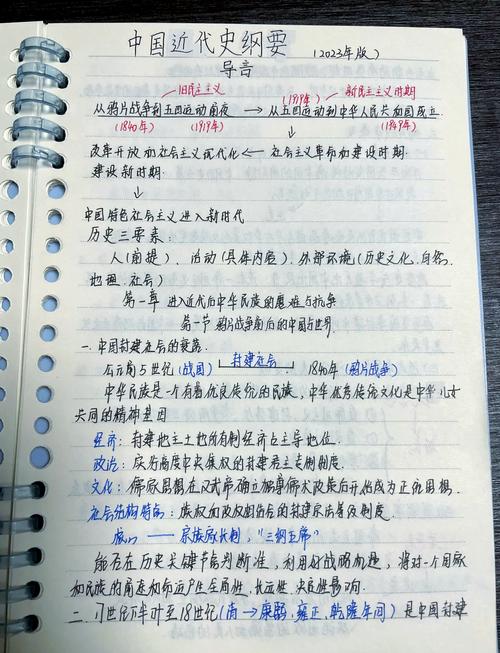 中国近代史纲要 (2023年版)
导言
旧民主主义 (1919年) 新民主主义时期
从鸦片战争到五四运动前夜 → 从五四运动到中华人民共和国成立
(1840年) (1919年) (1949年)
↓
改革开放和社会主义现代化 ← 社会主义革命和建设时期
建设新时期
↓
中国特色社会主义进入新时代
历史三要素:
人(前提)、活动(具体内容)、外部环境(历史文化、自然、
地理、社会)
第一章 进入近代后中华民族的磨难与抗争
第一节 鸦片战争前后的中国与世界
一. 中国封建社会的衰落
公元前5世纪(战国) 封建社会 1840年(鸦片战争)
中华民族是一个有着优良传统的民族,中华优秀传统文化是中华儿女
共同的精神基因
经济:封建地主土地所有制经济占主导地位.
政治:实行高度中央集权的封建君主专制制度.
文化:儒家思想在汉武帝确立独尊儒术政策后开始成为正统思想.
社会结构特点:族权和政权相结合的封建宗法等级制度.
核心—家族族长制,"三纲五常"
能否在历史关键节点判断准,利用好战略机遇,将对一个国家
和民族的前途和命运产生全局性、长远性、决定性影响.
二. 17世纪下半叶至18世纪(清→康熙,雍正,乾隆年间)是中国封建